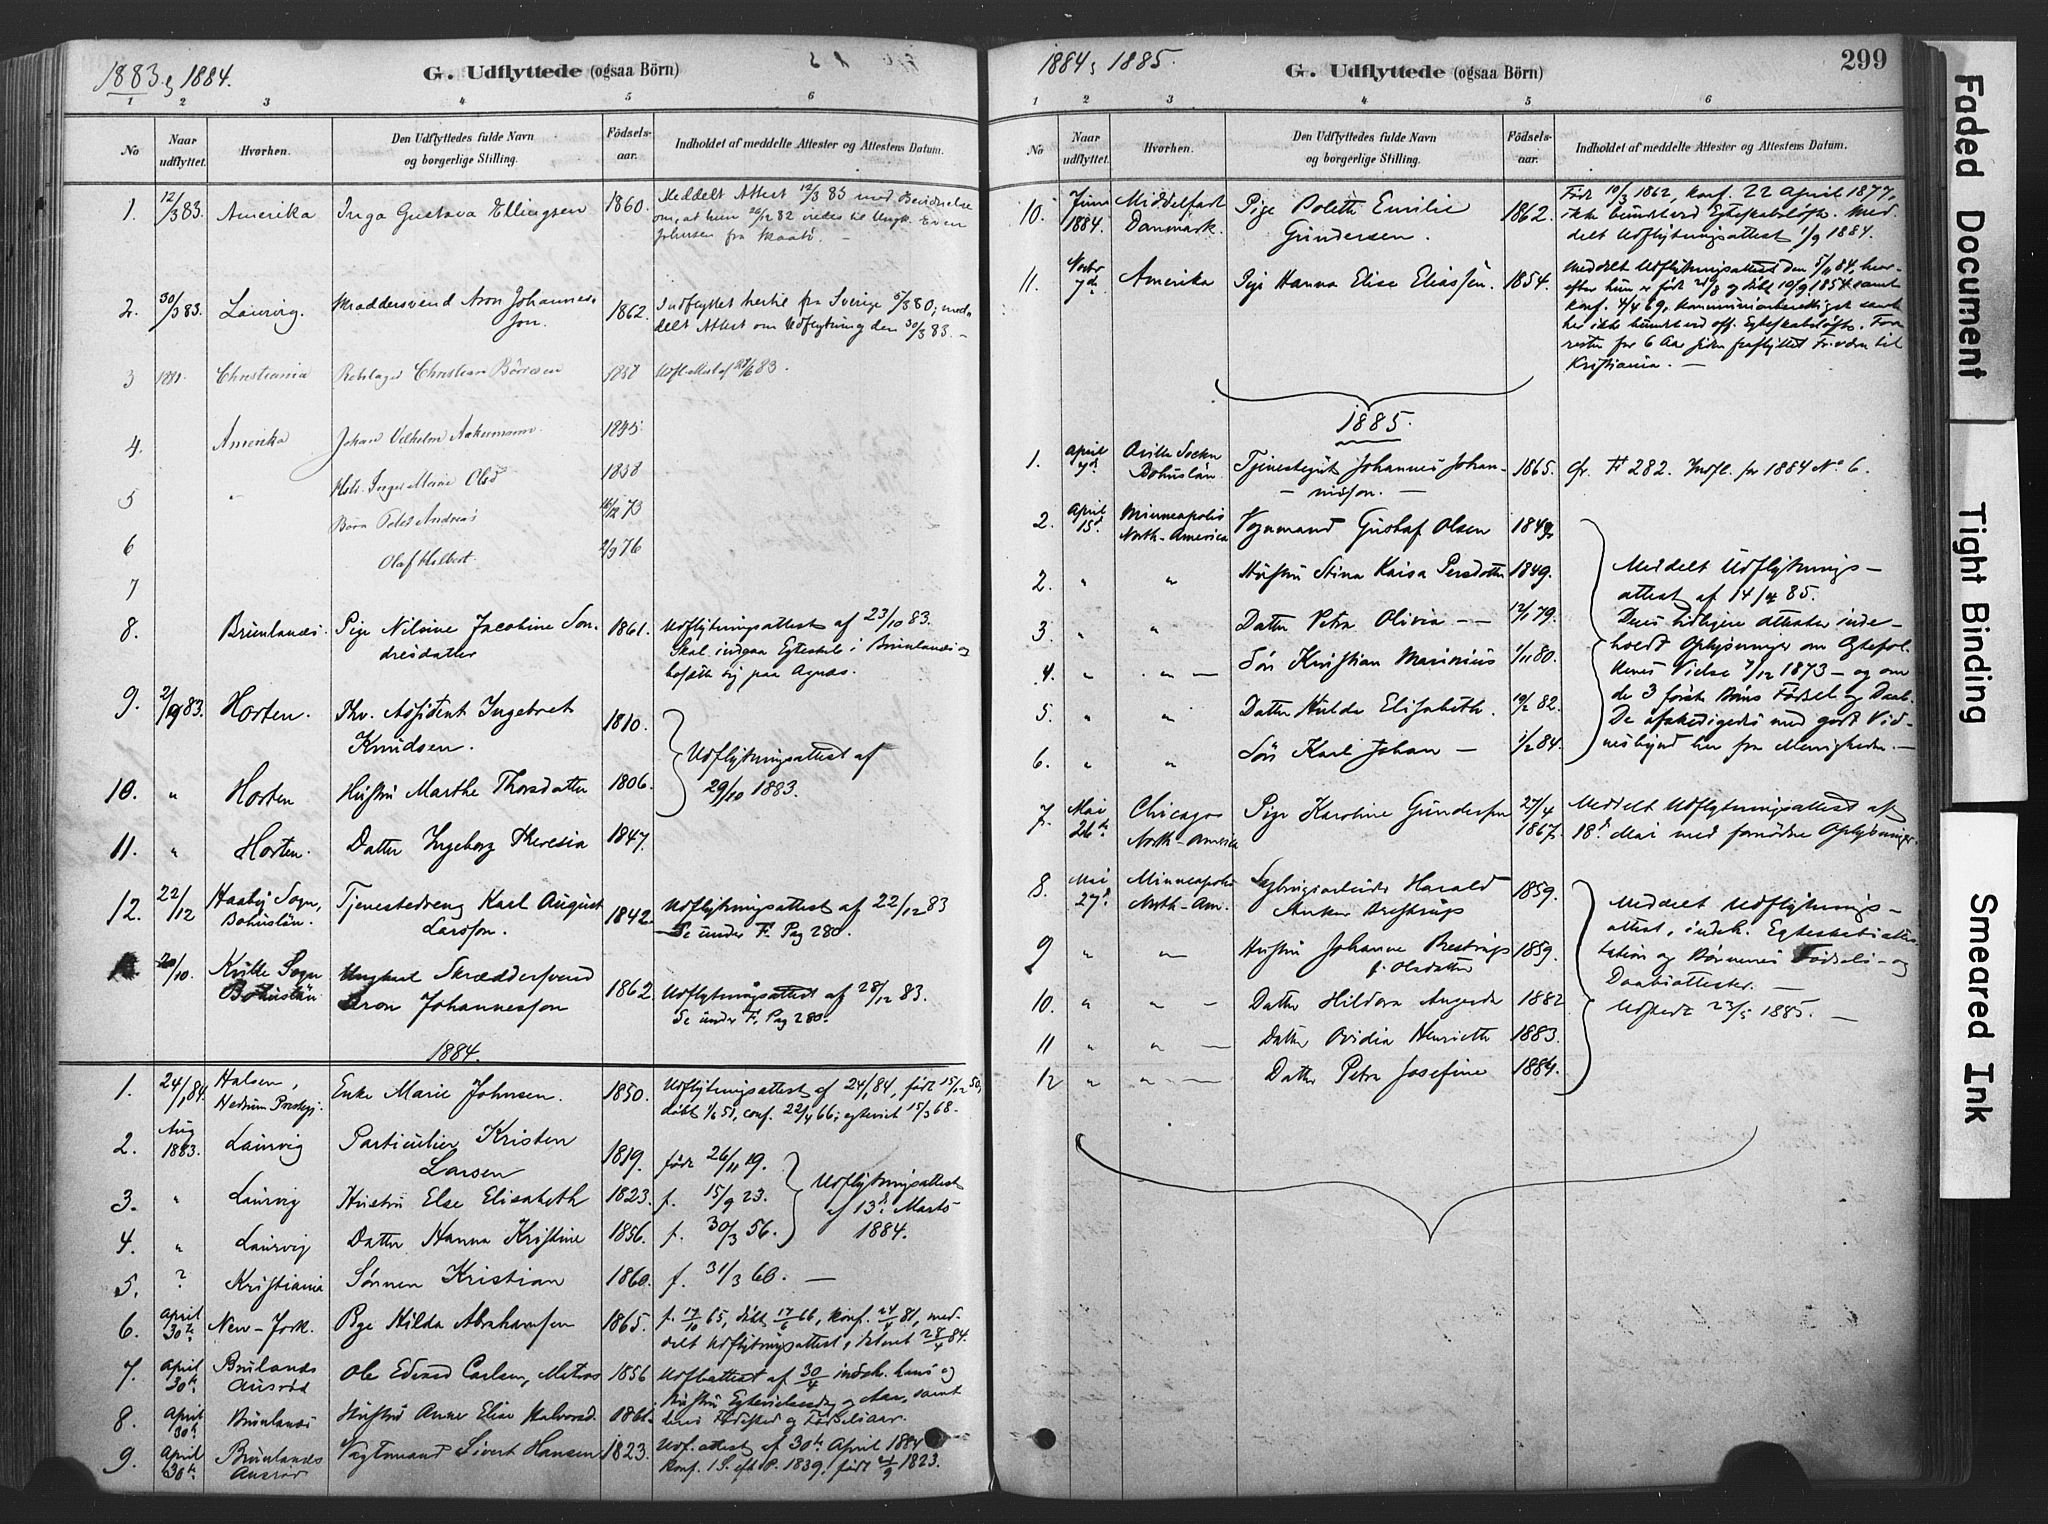 1883 & 1884.
G. Udflyttede (ogsaa Börn)
1 2 3 4 5 6
No
Naar udflyttet.
Hvorhen.
Den Udflyttedes fulde Navn og borgerlige Stilling.
Födsels-aar.
Indholdet af meddelte Attester og Attestens Datum.
1. 12/3 83. Amerika Inga Gustava Ellingsen 1860. Meddelt Attest 12/3 83 med
Johnsen fra Skaatö. —
2. 30/3 83. Laurvig. Skræddersvend Aron Johannes- 1862. Indflyttet hertil fra Sverige 5/8 80; med-
son. delt Attest om Udflytning den 30/3 83. —
3 1881. Christiania Rebslager Christian Börresen 1857 Udfl. Attest af 27/6 83.
4. Amerika Johan Vilhelm Aakermann 1845.
5 " Hstr. Inger Marie Olsd 1838
6 Börn Peter Andreas 16/12 73
7 Olaf Halbert. 2/9 76
8. Brunlanæs. Pige Nilsine Jacobine Son- 1861. Udflytningsattest af 23/10 83.
dresdatter Skal indgaa Egteskab i Brunlanæs og
bosætte sig paa Agnæs.
9. 2/10 83. Horten. Fhv. Assistent Ingebret 1810.
Knudsen. Udflytningsattest af
10. " Horten Hustru Marthe Thorsdatter 1806. 29/10 1883.
11. " Horten. Datter Ingeborg Theresia 1847.
12. 22/12 Haaby Sogn, Tjenestedreng Karl August 1842. Udflytningsattest af 22/12 83
Bohuslän. Larsson. Se under F. Pag 280.
20/10. Kville Sogn Ungkarl Skræddersvend
Bohuslän Aron Johannesson 1862. Udflytningsattest af 28/12 83.
Se under F. Pag 280.
1884.
1. 24/1 84. Halsen, Enke Marie Johnsen. 1850. Udflytningsattest af 24/1 84, födt 15/12 50,
Hedrum Præstegj. döbt 1/6 51, conf. 22/4 66; egteviet 15/3 68.
2. Aug 1883. Laurvig Particulier Kristen 1819. födt 26/11 19.
Larsen
3. " Laurvig Hustru Else Elisabeth 1823. f. 15/9 23. Udflytningsattest
af 13d. Marts
4. " Laurvig Datter Hanna Kristine 1856. f. 30/3 56. 1884.
5. ? Kristiania Sönnen Kristian 1860. f. 31/3 60. —
6. April 30te New-York. Pige Hilda Abrahamsen 1865. f. 17/10 65, döbt 17/6 66, konf. 24/4 81, med-
delt Udflytningsattest, dateret 28/4 84.
7. April 30te Brunlanæs Ole Edvard Carlsen, Matros 1856 Udflattest af 30/4 indeh. hans og
Hustru Egtevielsesdag og Aar, samt
8. April 30te Brunlanæs Hustru Anne Elise Halvorsd. 1861. deres Födested og Födselsaar.
9. April 30te Brunlanæs Vagtmand Sivert Hansen 1823. Udf. attest af 30te April 1884
konf. 1 S. eft. P. 1839. födt 21/9 1823.
1884 & 1885.
G. Udflyttede (ogsaa Börn)
299
1 2 3 4 5 6
No
Naar udflyttet.
Hvorhen.
Den Udflyttedes fulde Navn og borgerlige Stilling.
Födsels-aar.
Indholdet af meddelte Attester og Attestens Datum.
10. Juni 1884. Middelfart Pige Bolette Emilie 1862. Föd 10/3 1862, konf. 22 April 1877,
Danmark. Gundersen. ikke bundet ved Egteskabslöfte. Med-
delt Udflytningsattest 1/9 1884.
11. Novbr 7de Amerika Pige Hanna Elise Eliassen. 1854. Meddelt Udflytningsattest den 5/11 84, hvor-
efter hun er födt 21/8 og döbt 10/9 1854 samt
konf. 4/4 69, kommunionberettiget samt
her ikke bundet ved off. Egteskabslöfte. For-
resten for 6 Aar siden fraflyttet til
Kristiania. —
1885.
1. April Qville Sockn Tjenestegut Johannes Johan- 1865. Cfr. F 282. Indfl. for 1884 No 6.
Bohuslän. — nisson. —
2. April 15d Minneapolis Vognmand Gustaf Olsen 1849.
North-America
2. " " Hustru Stina Kaisa Persdotter 1849. Meddelt Udflytnings-
attest af 14/4 85.
3. " " Datter Petra Olivia — — 12/1 79. Deres tidligere attester inde-
holdt Oplysninger om Egtefol-
4. " " — Sön Kristian Marinius 1/11 80. kenes Vielse 7/12 1873 — og om
de 3 förste Börns Födsel og Daab.
5. " " Datter Hulda Elisabeth. 19/2 82. De afskediges med godt Vid-
6. " " Sön Karl Johan — 1/2 84. nesbyrd her fra Menigheden. —
7. Mai 26te Chicago Pige Karoline Gundersen 27/4 1867. Meddelt Udflytningsattest af
North-America 18d. Mai med fornödne Oplysninger.
8. Mai 27d. Minneapolis Sagbrugsarbeider Harald 1859.
North-Am. Anker Brestrup Meddelt Udflytnings-
attest, indeh. Egteskabsattes-
9 " " — Hustru Johanne Brestrup 1859. tation og Börnenes Födsels- og
f. Olsdatter Daabsattester. —
10. " " — Datter Hildora Augusta 1882 Udstedt 23/5 1885. —
11 " " — Datter Ovidia Henriette 1883.
12 " " — Datter Petra Josefine 1884.
Faded Document
Tight Binding
Smeared Ink